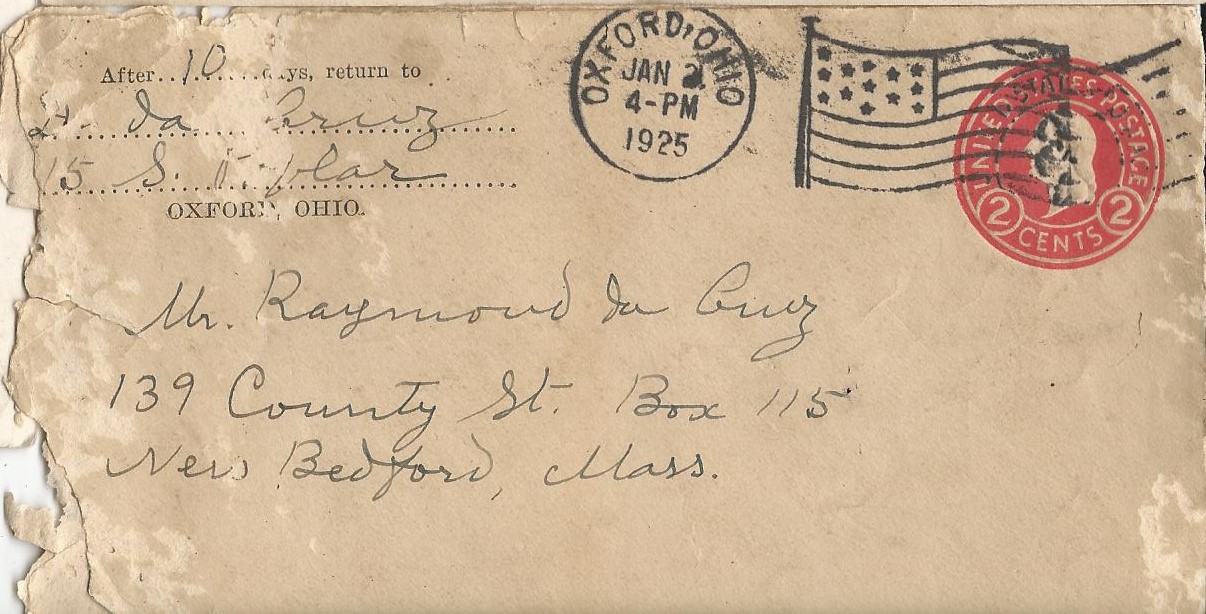 After..10....days, return to
da Cruz
15 S. Poplar
OXFORD, OHIO.
OXFORD, OHIO
JAN 2
4-PM
1925
UNITED STATES POSTAGE
2 CENTS 2
Mr. Raymond da Cruz
139 County St. Box 115
New Bedford, Mass.